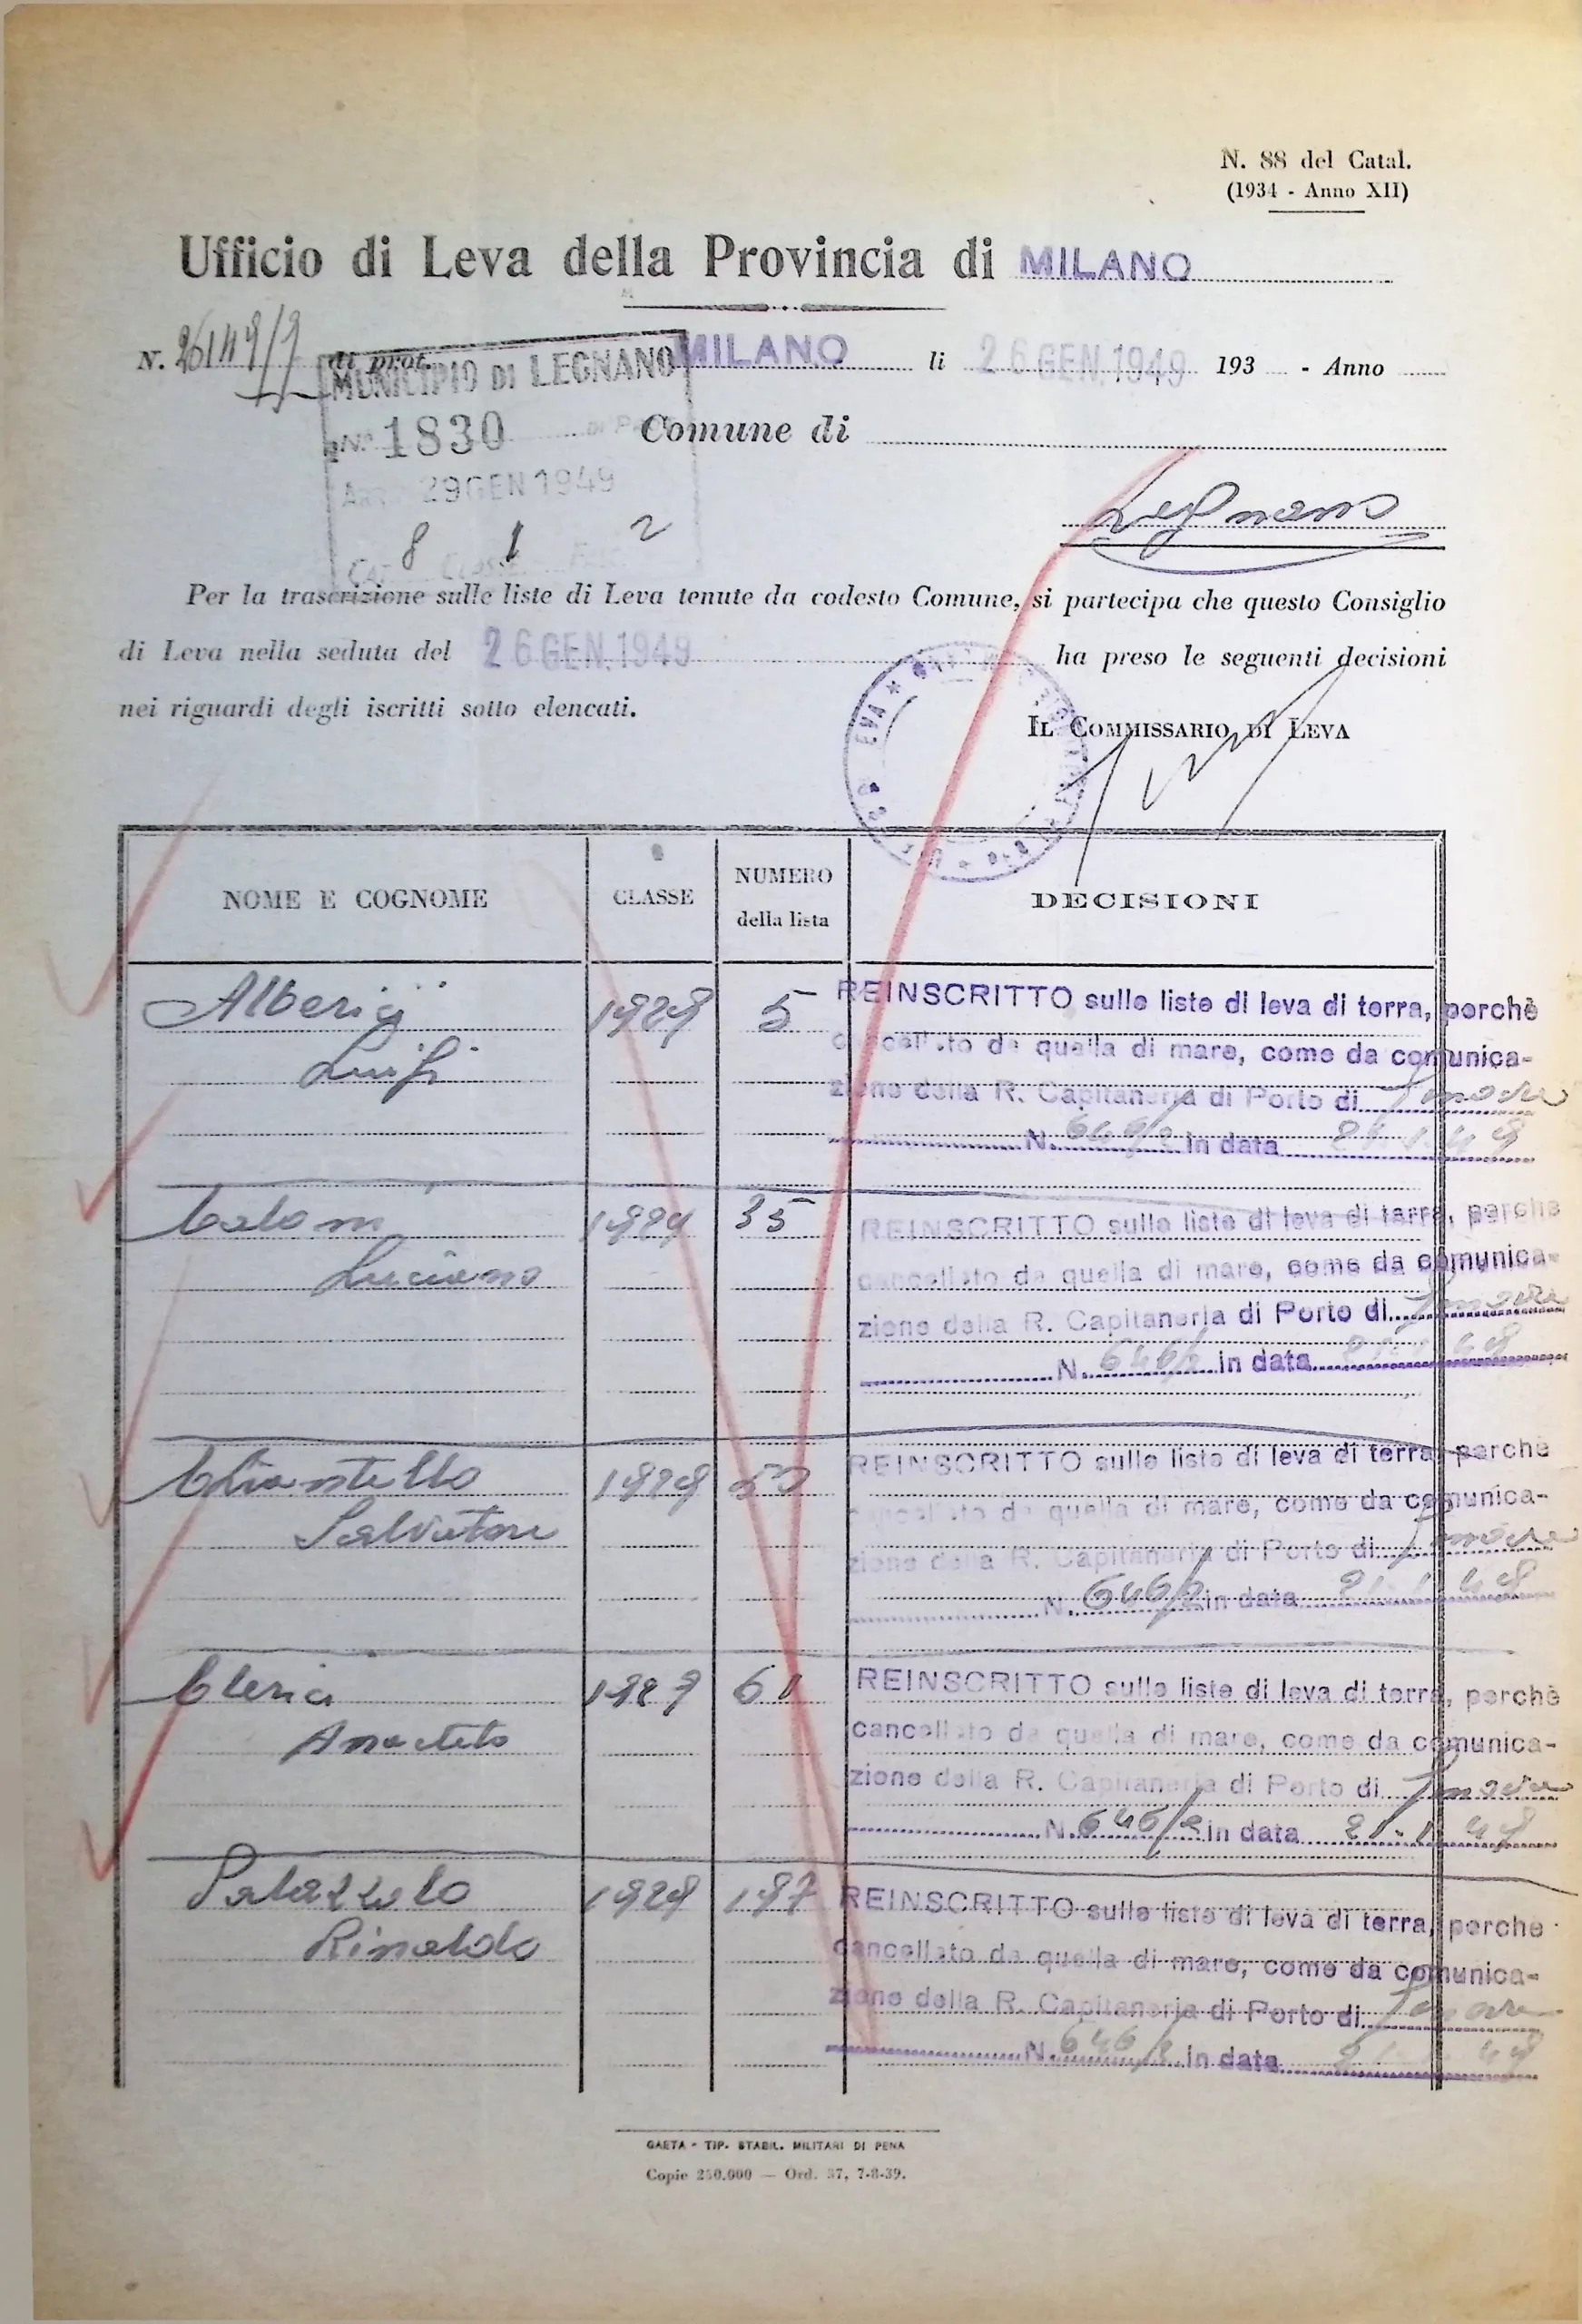 N. 88 del Catal.
(1934 - Anno XII)
Ufficio di Leva della Provincia di MILANO
N. 26149/9 di prot. MILANO li 26 GEN. 1949 193 - Anno
MUNICIPIO DI LEGNANO
N° 1830
Comune di
29 GEN 1949
Legnano
8 1 2
Per la trascrizione sulle liste di Leva tenute da codesto Comune, si partecipa che questo Consiglio
di Leva nella seduta del 26 GEN. 1949 ha preso le seguenti decisioni
nei riguardi degli iscritti sotto elencati.
IL COMMISSARIO DI LEVA
NOME E COGNOME CLASSE NUMERO della lista DECISIONI
Alberici 1929 5 REINSCRITTO sulle liste di leva di terra, perchè
cancellato da quella di mare, come da comunica-
Luigi
zione della R. Capitaneria di Porto di
N. 646/2 in data
1929 35 REINSCRITTO sulle liste di leva di terra, perchè
Luciano
cancellato da quella di mare, come da comunica-
zione della R. Capitaneria di Porto di
N. 646/2 in data
Chiantello 1929 REINSCRITTO sulle liste di leva di terra, perchè
Salvatore
cancellato da quella di mare, come da comunica-
zione della R. Capitaneria di Porto di
N. 646/2 in data
Clerici 61 REINSCRITTO sulle liste di leva di terra, perchè
Anacleto
cancellato da quella di mare, come da comunica-
zione della R. Capitaneria di Porto di
N. 646/2 in data
Palazzolo 1929 197 REINSCRITTO sulle liste di leva di terra, perchè
Rinaldo
cancellato da quella di mare, come da comunica-
zione della R. Capitaneria di Porto di
N. 646/2 in data
GAETA - TIP. STABIL. MILITARI DI PENA
Copie 250.000 — Ord. 57, 7-8-39.